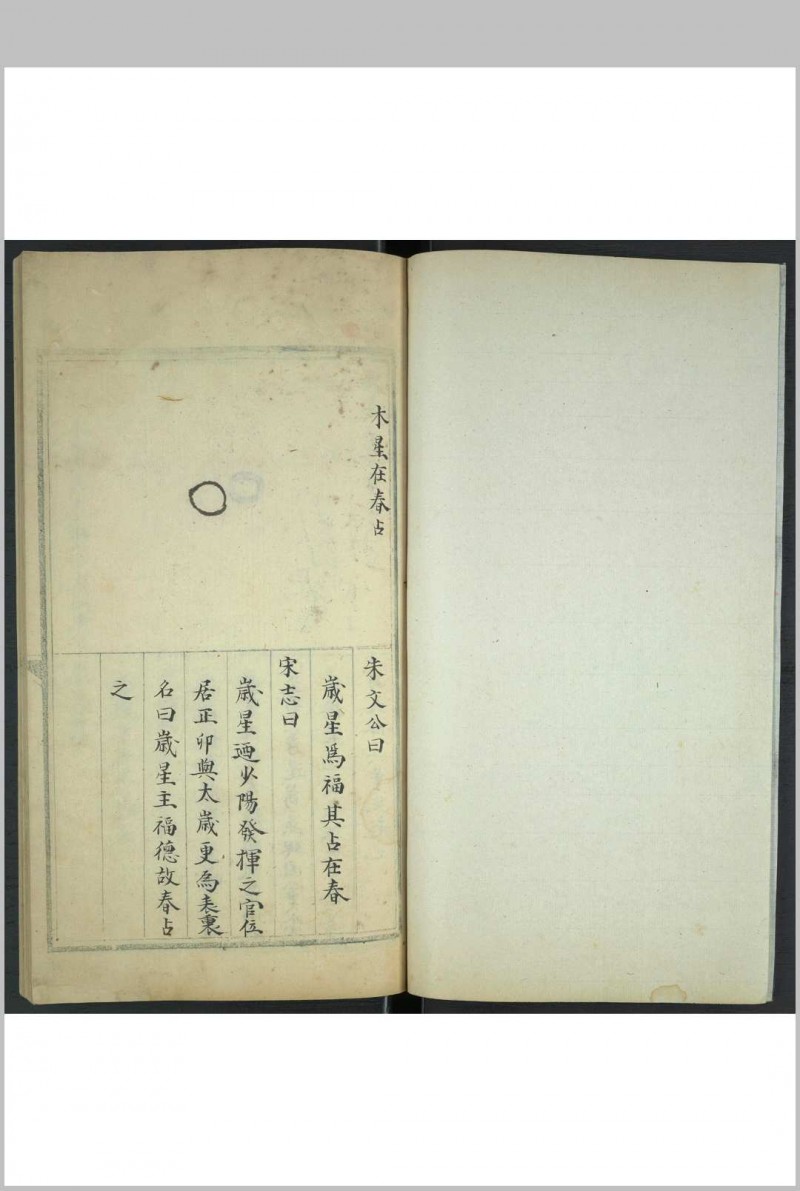 木星在春占
朱文公曰
歲星爲福其占在春
宋志曰
歲星廼少陽發揮之官位
居正卯與太歲更爲表裏
名曰歲星主福德故春占
之